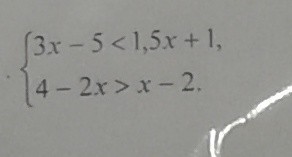 3x − 5 < 1,5x + 1,
4 − 2x > x − 2.